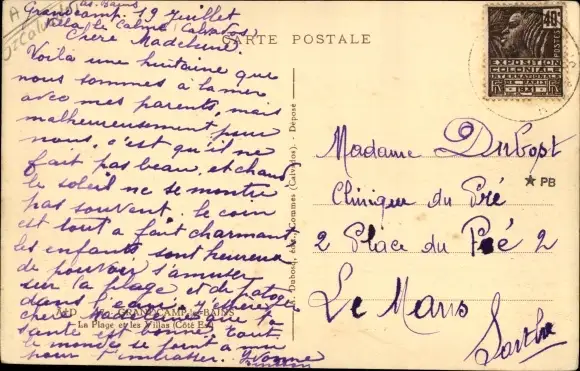 les Bains
Grandcamp. 19 Juillet
Villa le Calme Calvados
Chère Madeleine.
Voilà une huitaine que
nous sommes à la mer
avec mes parents, mais
malheureusement pour
nous, c'est qu'il ne
fait pas beau, et chaud
le soleil ne se montre
pas souvent. le coin
est tout a fait charmant
les enfants sont heureux
de pouvoir s'amuser
sur la plage et de patoger
dans l'eau. J'espère
chère Madeleine que ta
santé est bonne. tout
le monde se joint a moi
pour t'embrasser. Yvonne
A
Calvados
CARTE POSTALE
40c
POSTES
EXPOSITION
COLONIALE
INTERNATIONALE
DE PARIS
1931
Madame Dubost
Clinique du Pré
2 Place du Pré 2
Le Mans
Sarthe
★ PB
Dubosq, édit., Commes (Calvados). - Déposé
GRANDCAMP-les-BAINS
La Plage et les Villas (Côté Est)